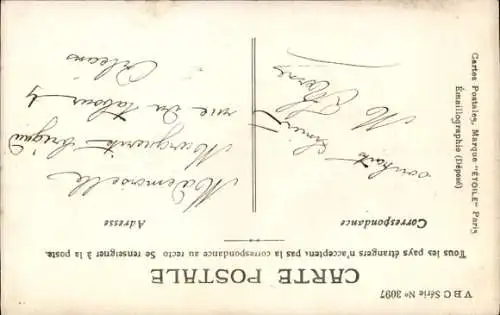 CARTE POSTALE
Tous les pays étrangers n'acceptent pas la correspondance au recto Se renseigner à la poste.
Correspondance
Adresse
souhaits
M
Mademoiselle
Marguerite
rue du Tabour 4
Orléans
V B C Série No 3097
Cartes Postales, Marque "ÉTOILE" Paris
Émaillographie (Déposé)